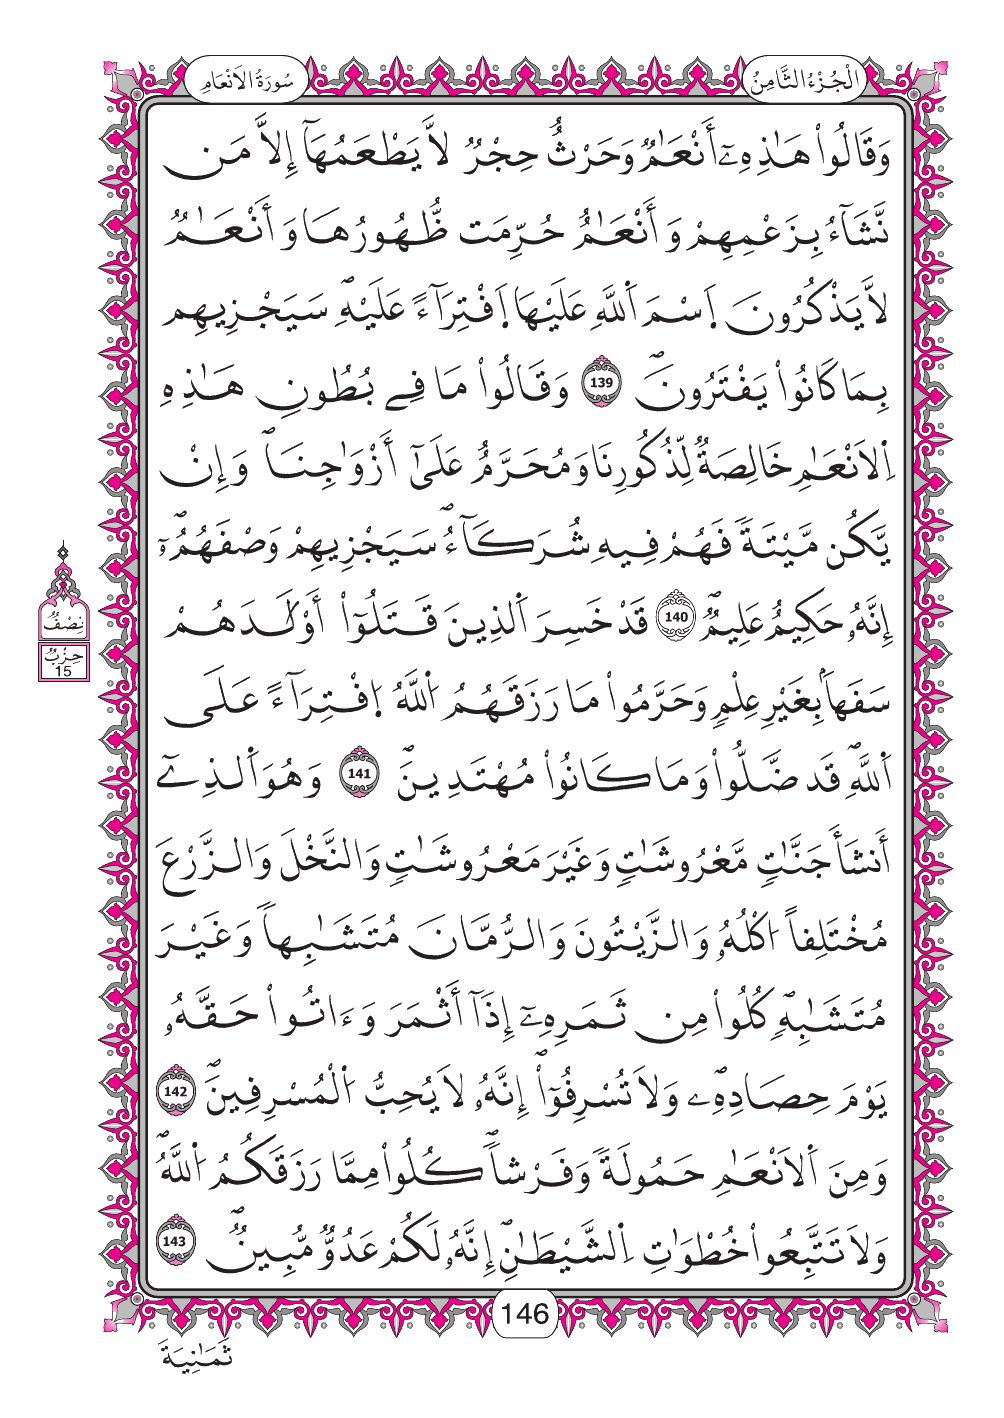 سُورَةُ الَانْعَامِ
الْجُزْءُ الثَّامِنُ
وَقَالُواْ هَٰذِهِۦٓ أَنْعَٰمٌ وَحَرْثٌ حِجْرٌ لَّا يَطْعَمُهَآ إِلَّا مَن
نَّشَآءُ بِزَعْمِهِمْ وَأَنْعَٰمٌ حُرِّمَت ظُّهُورُهَا وَأَنْعَٰمٌ
لَّا يَذْكُرُونَ اَسْمَ اَللَّهِ عَلَيْهَا اَفْتِرَآءً عَلَيْهِ سَيَجْزِيهِم
بِمَا كَانُواْ يَفْتَرُونَ 139 وَقَالُواْ مَا فِے بُطُونِ هَٰذِهِ
اِلَانْعَٰمِ خَالِصَةٌ لِّذُكُورِنَا وَمُحَرَّمٌ عَلَىٰٓ أَزْوَٰجِنَا وَإِنْ
يَّكُن مَّيْتَةً فَهُمْ فِيهِ شُرَكَآءُ سَيَجْزِيهِمْ وَصْفَهُمُۥٓ
إِنَّهُۥ حَكِيمٌ عَلِيمٌ 140 قَدْ خَسِرَ اَلذِينَ قَتَلُوٓاْ أَوْلَٰدَهُمْ
سَفَهاَۢ بِغَيْرِ عِلْمٍ وَحَرَّمُواْ مَا رَزَقَهُمُ اُللَّهُ اُفْتِرَآءً عَلَى
اَللَّهِ قَد ضَّلُّواْ وَمَا كَانُواْ مُهْتَدِينَ 141 وَهُوَ اَلذِےٓ
أَنشَأَ جَنَّٰتٍ مَّعْرُوشَٰتٍ وَغَيْرَ مَعْرُوشَٰتٍ وَالنَّخْلَ وَالزَّرْعَ
مُخْتَلِفاً اُكْلُهُۥ وَالزَّيْتُونَ وَالرُّمَّانَ مُتَشَٰبِهاً وَغَيْرَ
مُتَشَٰبِهٍ كُلُواْ مِن ثَمَرِهِۦٓ إِذَآ أَثْمَرَ وَءَاتُواْ حَقَّهُۥ
يَوْمَ حِصَادِهِۦ وَلَا تُسْرِفُوٓاْ إِنَّهُۥ لَا يُحِبُّ اُلْمُسْرِفِينَ 142
وَمِنَ اَلَانْعَٰمِ حَمُولَةً وَفَرْشاً كُلُواْ مِمَّا رَزَقَكُمُ اُللَّهُ
وَلَا تَتَّبِعُواْ خُطْوَٰتِ اِلشَّيْطَٰنِ إِنَّهُۥ لَكُمْ عَدُوٌّ مُّبِينٌ 143
نِصْفُ
حِزْبٌ
15
146
ثَمَٰنِيَةَ